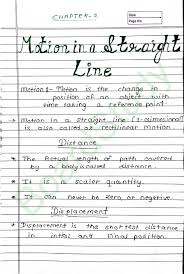 CHAPTER-2
Date
Page No.
Motion in a Straight
Line
Motion :- Motion is the change in
position of an object with
time taking a reference point
Motion in a straight line (1-dimensional)
is also called as rectilinear motion
Distance
The Actual length of path covered
by a body is called distance
It is a scaler quantity
It can never be zero or negative
Displacement
Displacement is the shortest distance
in intial and Final position.